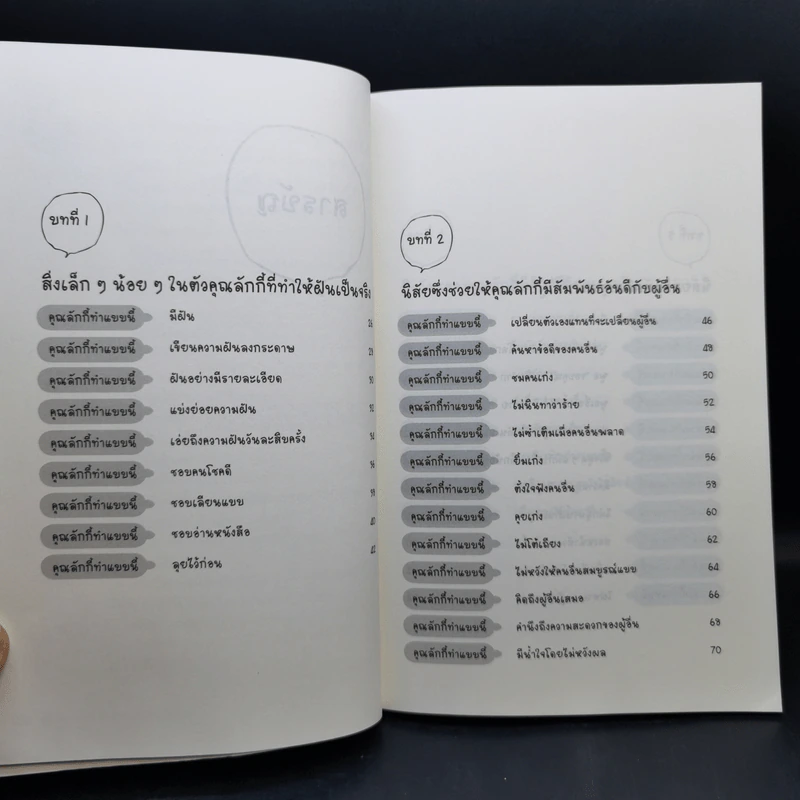 บทที่ 1
สิ่งเล็ก ๆ น้อย ๆ ในตัวคุณลักกี้ที่ทำให้ฝันเป็นจริง
คุณลักกี้ทำแบบนี้ มีฝัน 26
คุณลักกี้ทำแบบนี้ เขียนความฝันลงกระดาษ 28
คุณลักกี้ทำแบบนี้ ฝันอย่างมีรายละเอียด 30
คุณลักกี้ทำแบบนี้ แบ่งย่อยความฝัน 32
คุณลักกี้ทำแบบนี้ เอ่ยถึงความฝันวันละสิบครั้ง 34
คุณลักกี้ทำแบบนี้ ชอบคนโชคดี 36
คุณลักกี้ทำแบบนี้ ชอบเลียนแบบ 38
คุณลักกี้ทำแบบนี้ ชอบอ่านหนังสือ 40
คุณลักกี้ทำแบบนี้ ลุยไว้ก่อน 42
บทที่ 2
นิสัยซึ่งช่วยให้คุณลักกี้มีสัมพันธ์อันดีกับผู้อื่น
คุณลักกี้ทำแบบนี้ เปลี่ยนตัวเองแทนที่จะเปลี่ยนผู้อื่น 46
คุณลักกี้ทำแบบนี้ ค้นหาข้อดีของคนอื่น 48
คุณลักกี้ทำแบบนี้ ชมคนเก่ง 50
คุณลักกี้ทำแบบนี้ ไม่นินทาว่าร้าย 52
คุณลักกี้ทำแบบนี้ ไม่ซ้ำเติมเมื่อคนอื่นพลาด 54
คุณลักกี้ทำแบบนี้ ยิ้มเก่ง 56
คุณลักกี้ทำแบบนี้ ตั้งใจฟังคนอื่น 58
คุณลักกี้ทำแบบนี้ คุยเก่ง 60
คุณลักกี้ทำแบบนี้ ไม่โต้เถียง 62
คุณลักกี้ทำแบบนี้ ไม่หวังให้คนอื่นสมบูรณ์แบบ 64
คุณลักกี้ทำแบบนี้ คิดถึงผู้อื่นเสมอ 66
คุณลักกี้ทำแบบนี้ คำนึงถึงความสะดวกของผู้อื่น 68
คุณลักกี้ทำแบบนี้ มีน้ำใจโดยไม่หวังผล 70